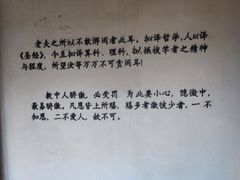 老夫之所以不敢谢闲者此耳。拟译哲学,人以译
《圣经》,今且拟译算科、理科,拟振拔学者之精神
与程度,所望汝等万万不可贪闲耳!
教中人骄傲,必受罚 为此要小心,隐微中,
最易骄傲。凡恩皆上所赐,赐多者傲彼少者,一不
知恩,二不爱人,故不可。